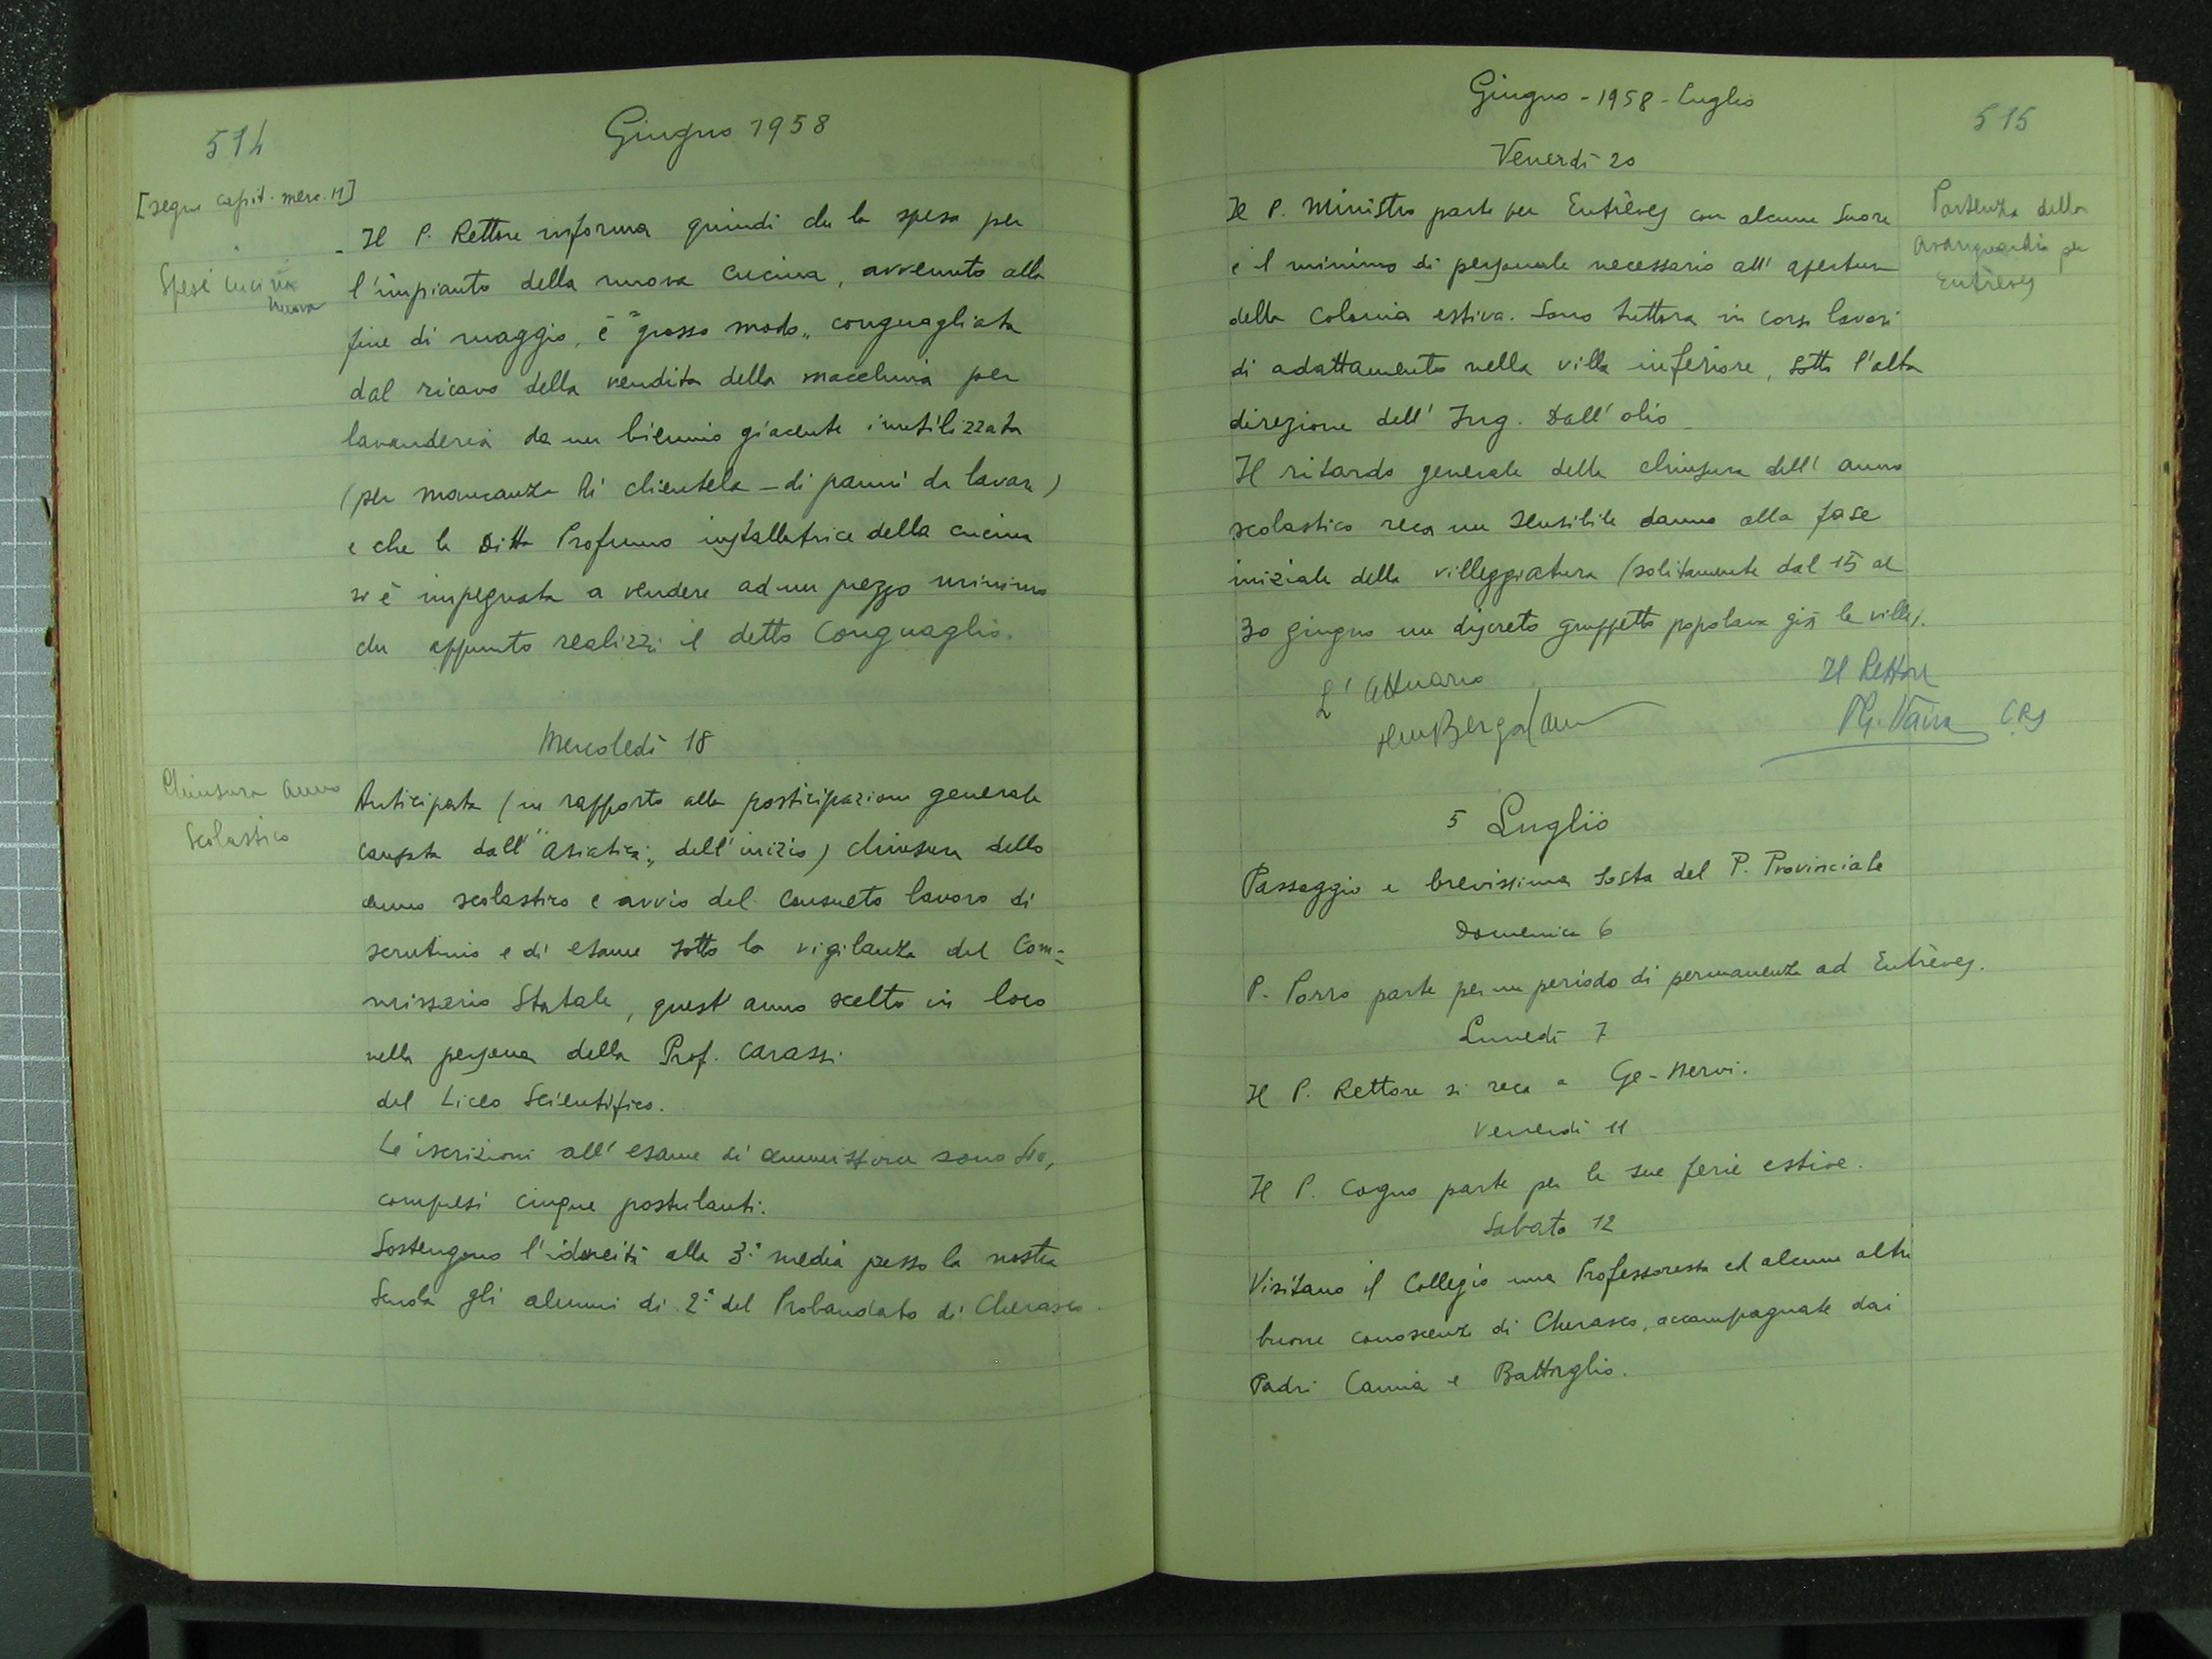 514
Giugno 1958
[segue capit. merc. 11]
- Il P. Rettore informa quindi che la spesa per
Spese cucina
nuova
l'impianto della nuova cucina, avvenuto alla
fine di maggio, è "grosso modo„ conguagliata
dal ricavo della vendita della macchina per
lavanderia da un biennio giacente inutilizzata
(per mancanza di clientela - di panni da lavare)
e che la Ditta Profumo installatrice della cucina
si è impegnata a vendere ad un prezzo minimo
che appunto realizzi il detto Conguaglio.
Mercoledì 18
Chiusura anno
scolastico
Anticipata (in rapporto alla posticipazione generale
causata dall'"Asiatica„ dell'inizio) chiusura dello
anno scolastico e avvio del consueto lavoro di
scrutinio e di esame sotto la vigilanza del Com=
missario Statale, quest'anno scelto in loco
nella persona della Prof. Carassi
del Liceo Scientifico.
Le iscrizioni all'esame di ammissione sono
compresi cinque postulanti.
Sostengono l'idoneità alla 3ª media presso la nostra
Scuola gli alunni di 2ª del Probandato di Cherasco.
Giugno - 1958 - Luglio
515
Venerdì 20
Il P. Ministro parte per Entrèves con alcune Suore
e il minimo di personale necessario all'apertura
della Colonia estiva. Sono tuttora in corso lavori
di adattamento nella villa inferiore, sotto l'alta
direzione dell'Ing. Dall'olio.
Partenza della
avanguardia per
Entrèves
Il ritardo generale della chiusura dell'anno
scolastico reca un sensibile danno alla fase
iniziale della villeggiatura (solitamente dal 15 al
30 giugno un discreto gruppetto popolava già le ville).
L'Attuario
Il Rettore
P.G. Vaira CRS
5 Luglio
Passaggio e brevissima sosta del P. Provinciale
Domenica 6
P. Porro parte per un periodo di permanenza ad Entrèves.
Lunedì 7
Il P. Rettore si reca a Ge-Nervi.
Venerdì 11
Il P. Cogno parte per le sue ferie estive.
Sabato 12
Visitano il Collegio una Professoressa ed alcune altre
buone conoscenze di Cherasco, accompagnate dai
Padri Camia e Battaglio.